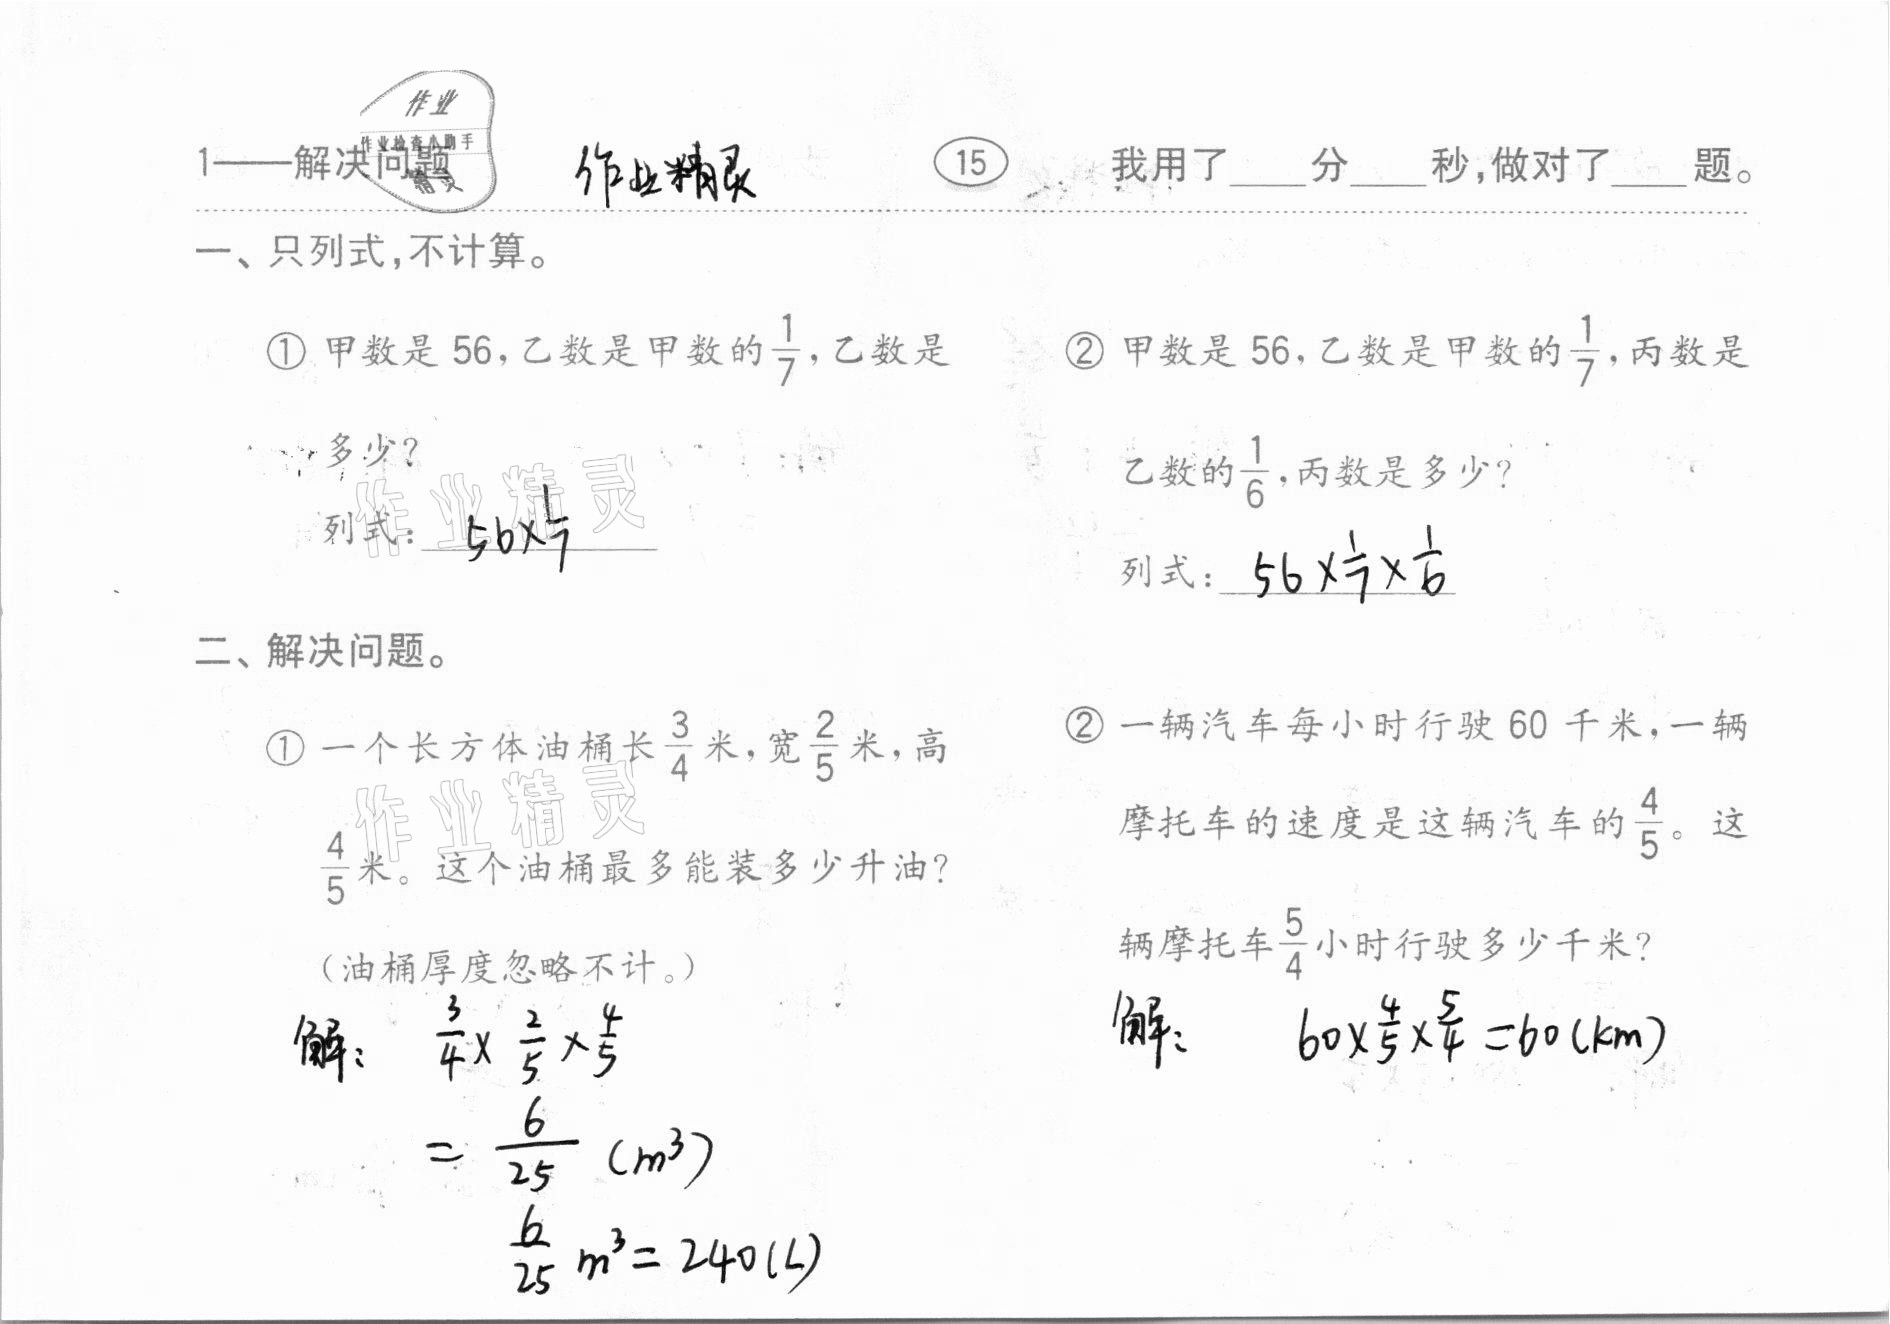 作业
作业检查小助手
精灵
1——解决问题 作业精灵 15 我用了____分____秒,做对了____题。
一、只列式,不计算。
① 甲数是 56,乙数是甲数的1/7,乙数是
多少?
列式: 56×1/7
② 甲数是 56,乙数是甲数的1/7,丙数是
乙数的1/6,丙数是多少?
列式: 56×1/7×1/6
作业精灵
二、解决问题。
① 一个长方体油桶长3/4米,宽2/5米,高
4/5米。这个油桶最多能装多少升油?
(油桶厚度忽略不计。)
解: 3/4×2/5×4/5
=6/25(m³)
6/25m³=240(L)
作业精灵
② 一辆汽车每小时行驶 60 千米,一辆
摩托车的速度是这辆汽车的4/5。这
辆摩托车5/4小时行驶多少千米?
解: 60×4/5×5/4=60(km)